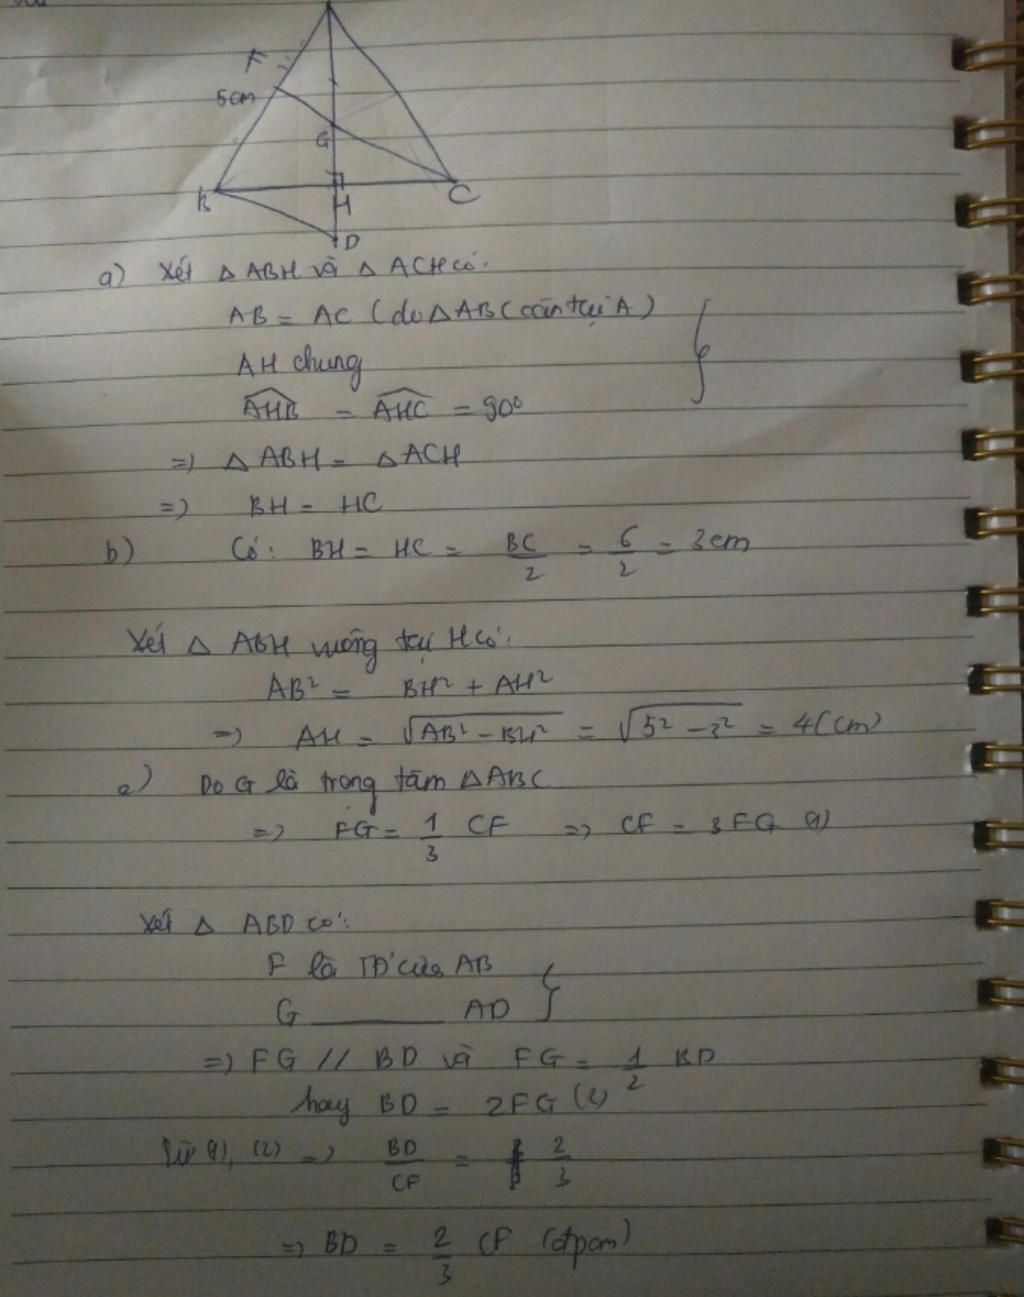 F
5cm
G
B
H
C
D
a) Xét △ ABH và △ ACH có:
AB = AC (do △ABC cân tại A)
AH chung
AHB = AHC = 90°
=> △ ABH = △ ACH
=> BH = HC
b) Có: BH = HC = BC/2 = 6/2 = 3cm
Xét △ ABH vuông tại H có:
AB² = BH² + AH²
=> AH = √AB² - BH² = √5² - 3² = 4(cm)
c) Do G là trọng tâm △ABC
=> FG = 1/3 CF => CF = 3FG (1)
Xét △ ABD có:
F là TĐ của AB
G ______ AD
=> FG // BD và FG = 1/2 BD
hay BD = 2FG (2)
Từ (1), (2) => BD/CF = 2/3
=> BD = 2/3 CF (đpcm)